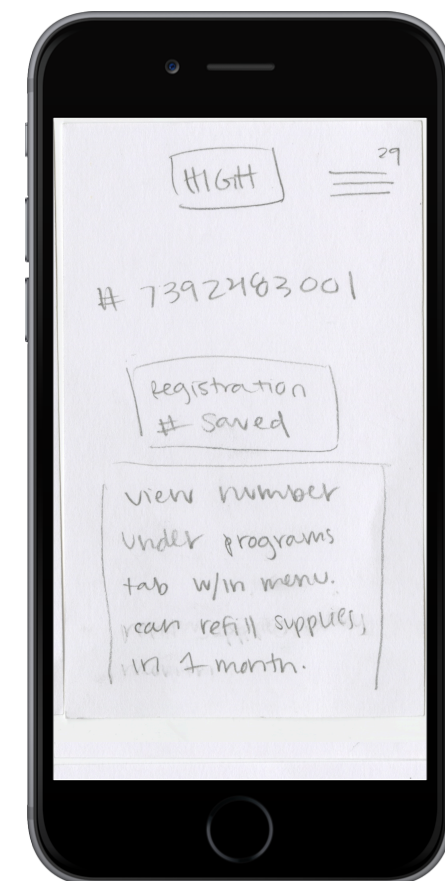 29
HIGH
# 7392483001
Registration
# Saved
view number
under programs
tab w/in menu.
can refill supplies,
in 1 month.